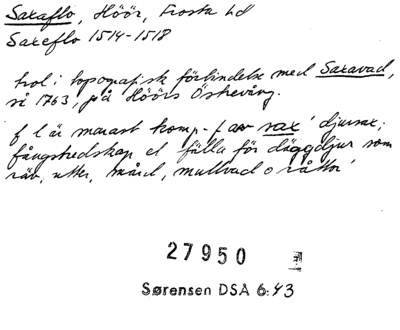 Saxaflo, Höör, Frosta hd
Saxeflo 1514-1518
trol i topografisk förbindelse med Saxavad,
vi 1763, på Höörs Östrevång.
f l är narast komp. - f av sax 'djursax;
fångstredskap el fälla för däggdjur som
räv, utter, mård, mullvad o råttor'
27950
Sørensen DSA 6:43